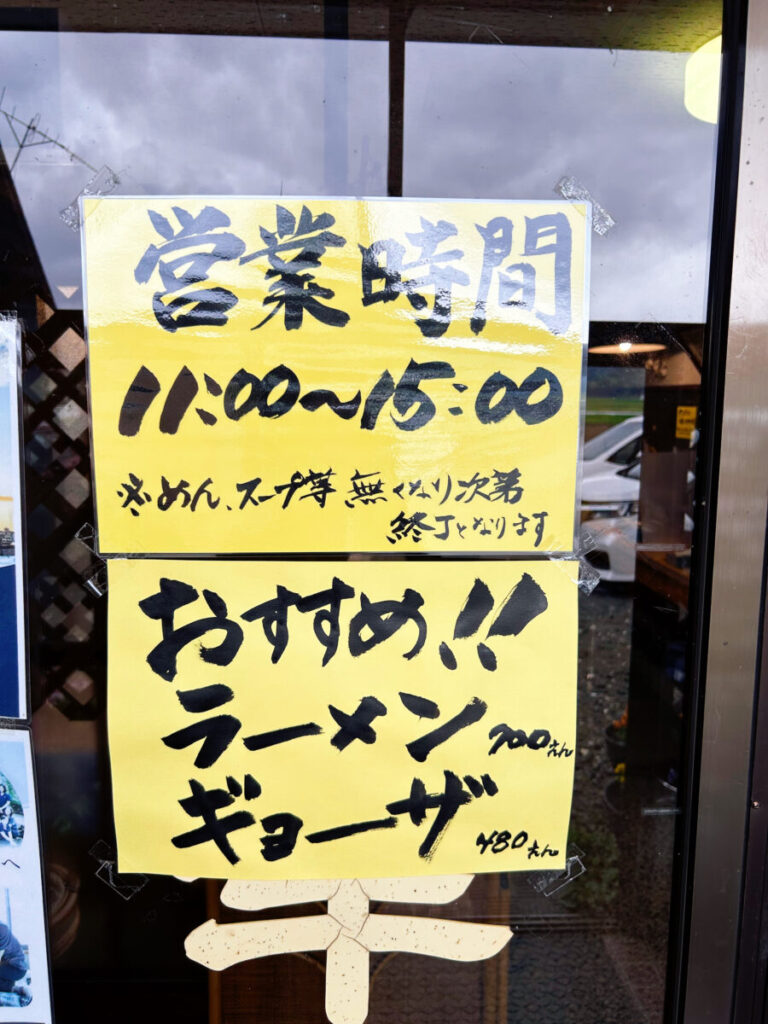 営業時間
11:00〜15:00
※めん、スープ等無くなり次第
終了となります
おすすめ!!
ラーメン 700えん
ギョーザ 480えん
へ